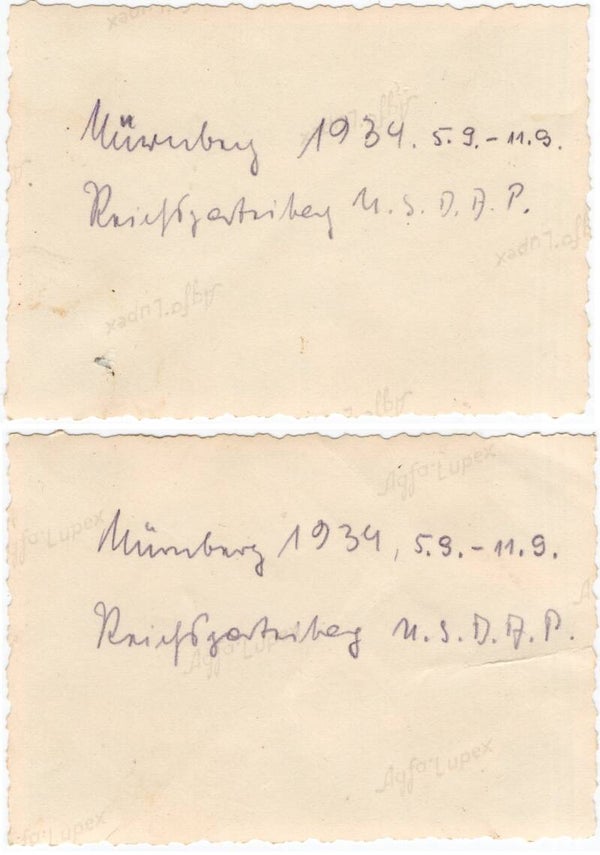 Agfa-Lupex
Nürnberg 1934. 5.9.-11.9.
Reichsparteitag N.S.D.A.P.
Agfa-Lupex
Agfa-Lupex
Agfa-Lupex
Agfa-Lupex
Nürnberg 1934, 5.9.-11.9.
Reichsparteitag N.S.D.A.P.
Agfa-Lupex
Agfa-Lupex